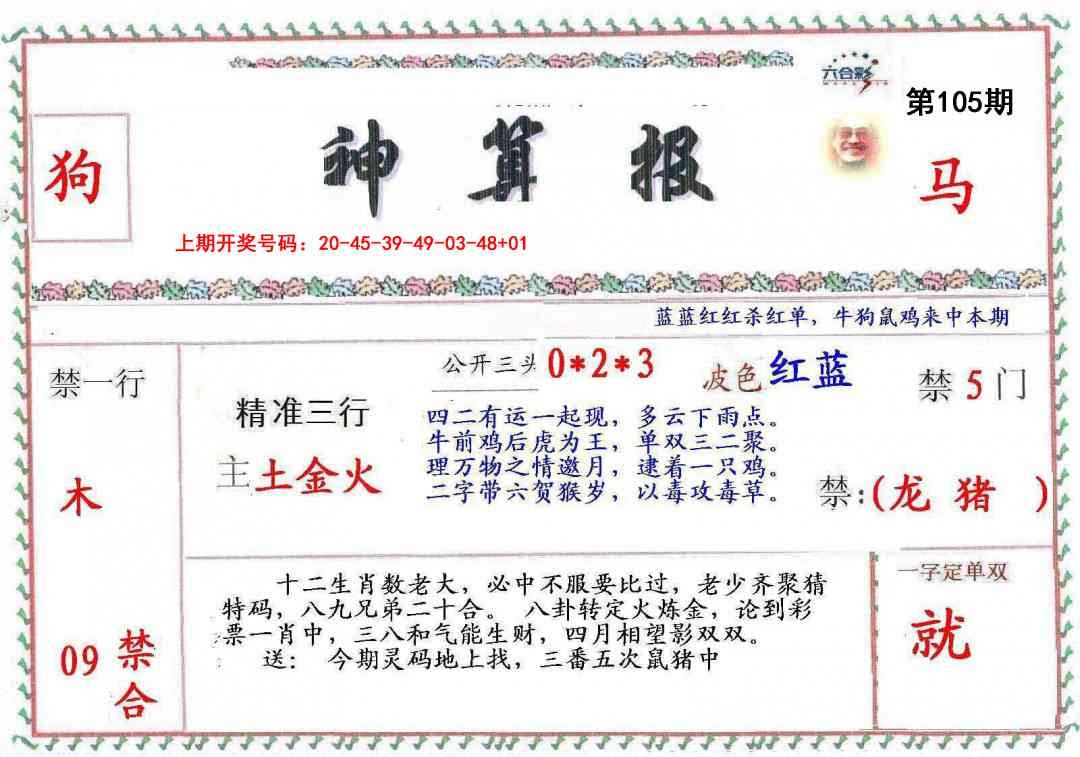 六合彩
第105期
狗
神算报
马
上期开奖号码：20-45-39-49-03-48+01
蓝蓝红红杀红单，牛狗鼠鸡来中本期
禁一行
公开三头 0*2*3
波色 红蓝
禁 5 门
精准三行
四二有运一起现，多云下雨点。
牛前鸡后虎为王，单双三二聚。
理万物之情邀月，逮着一只鸡。
二字带六贺猴岁，以毒攻毒草。
主 土金火
木
禁:(龙 猪 )
一字定单双
十二生肖数老大，必中不服要比过，老少齐聚猜
特码，八九兄弟二十合。 八卦转定火炼金，论到彩
票一肖中，三八和气能生财，四月相望影双双。
送： 今期灵码地上找，三番五次鼠猪中
就
09 禁
合